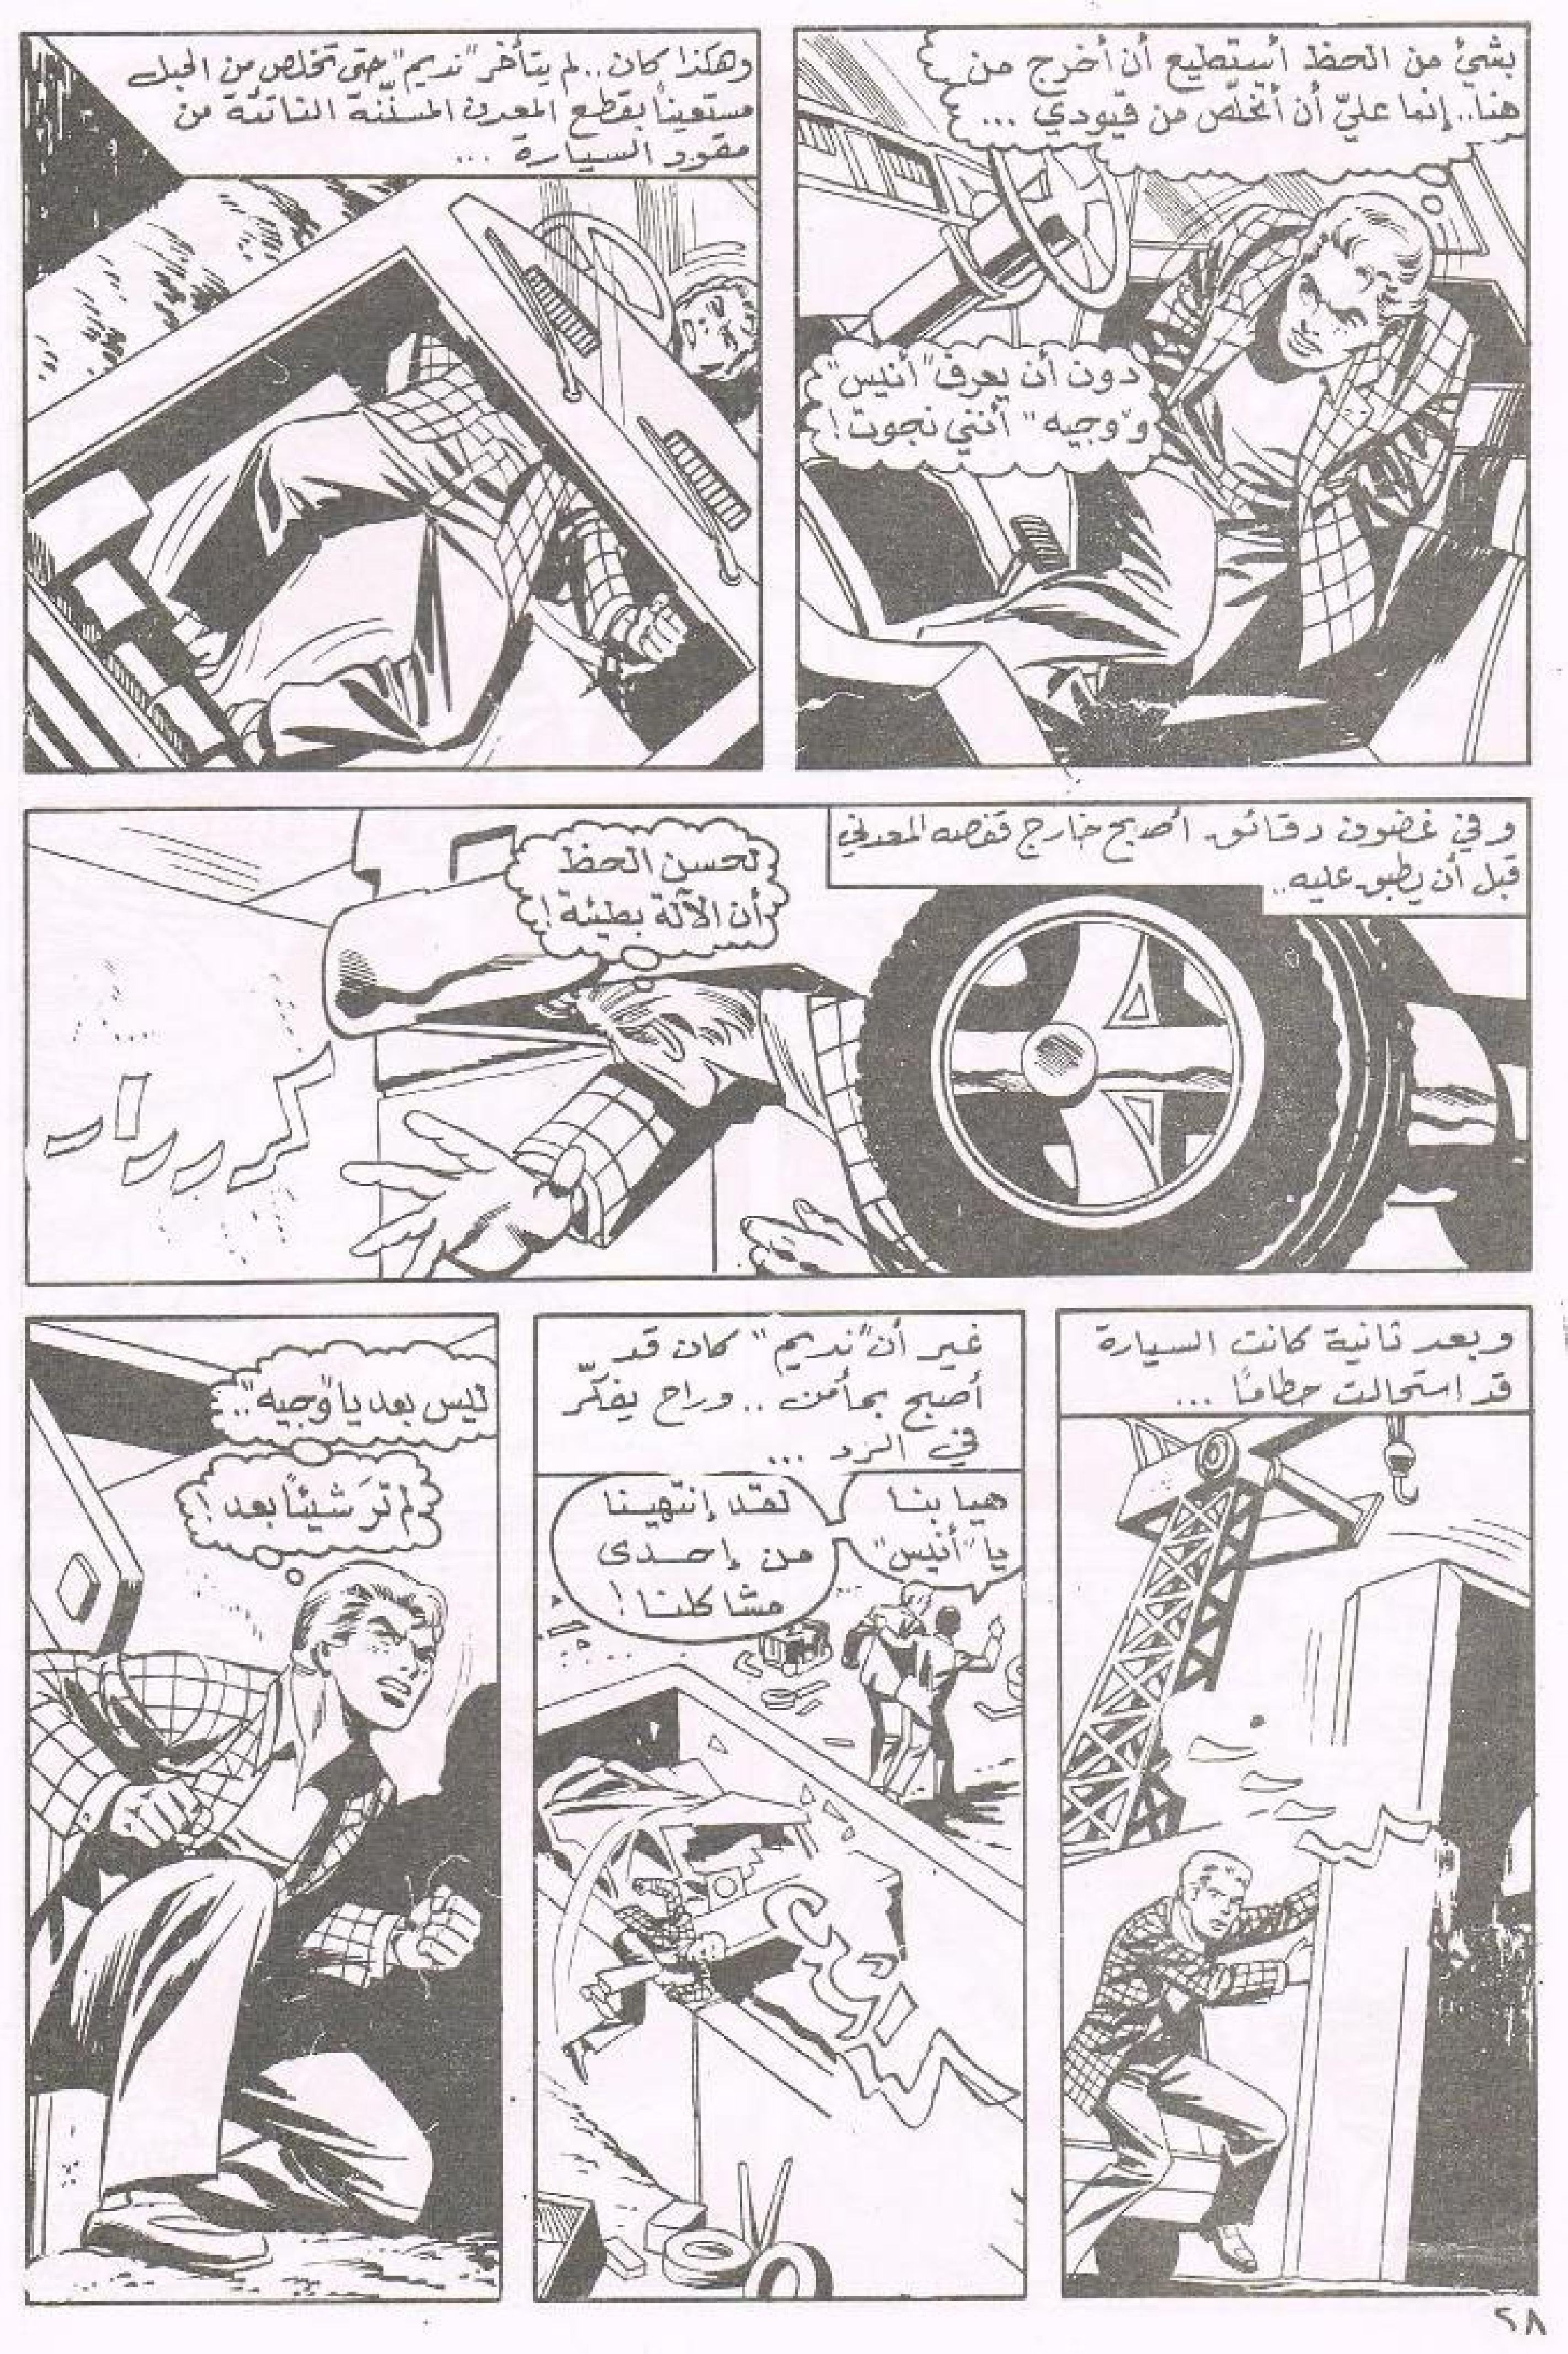 بشيْ من الحظ أستطيع أن أخرج من
هنا.. إنما عليّ أن أتخلّص من قيودي ...
دون أن يعرف "أنيس"
و"وجيه" أنني نجوت!
وهكذا كان.. لم يتأخر "نديم" حتى تخلص من الحبل
مستعيناً بقطع المعدن المسنّنة الناتئة من
مقود السيارة ...
وفي غضون دقائق أصبح خارج قفصه المعدني
قبل أن يطبق عليه..
لحسن الحظ
أن الآلة بطيئة!
وبعد ثانية كانت السيارة
قد استحالت حطامًا ...
غير أن "نديم" كان قد
أصبح بمأمن .. وراح يفكّر
في الرد ...
هيا بنا
يا "أنيس"
لقد إنتهينا
من إحدى
مشاكلنا!
ليس بعد يا "وجيه"..
لم تَرَ شيئاً بعد!
٢٨